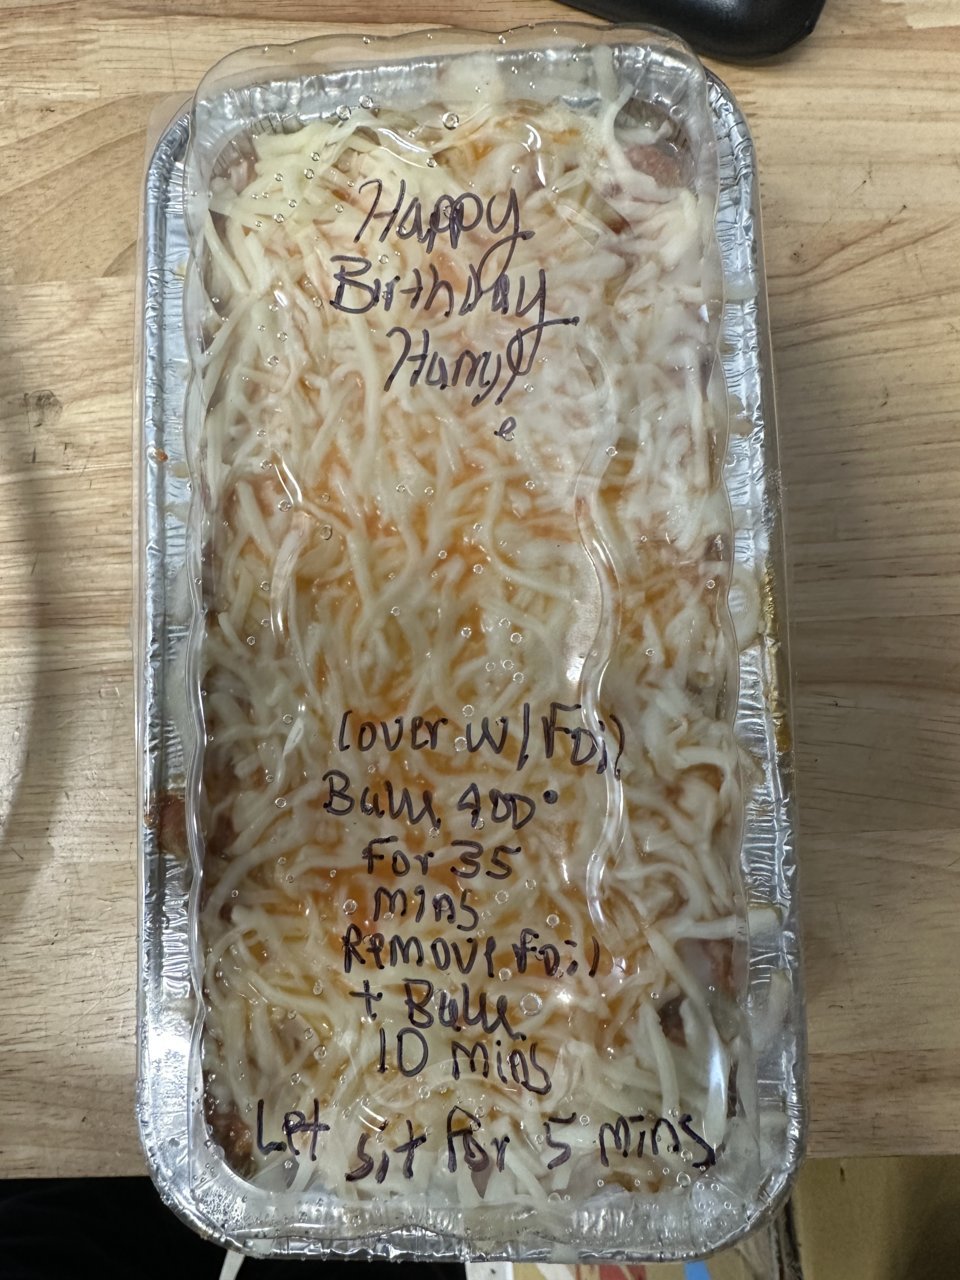 Happy
Birthday
Harry!
Cover w/ Foil
Bake 400°
For 35
mins
Remove Foil
+ Bake
10 mins
Let sit for 5 mins